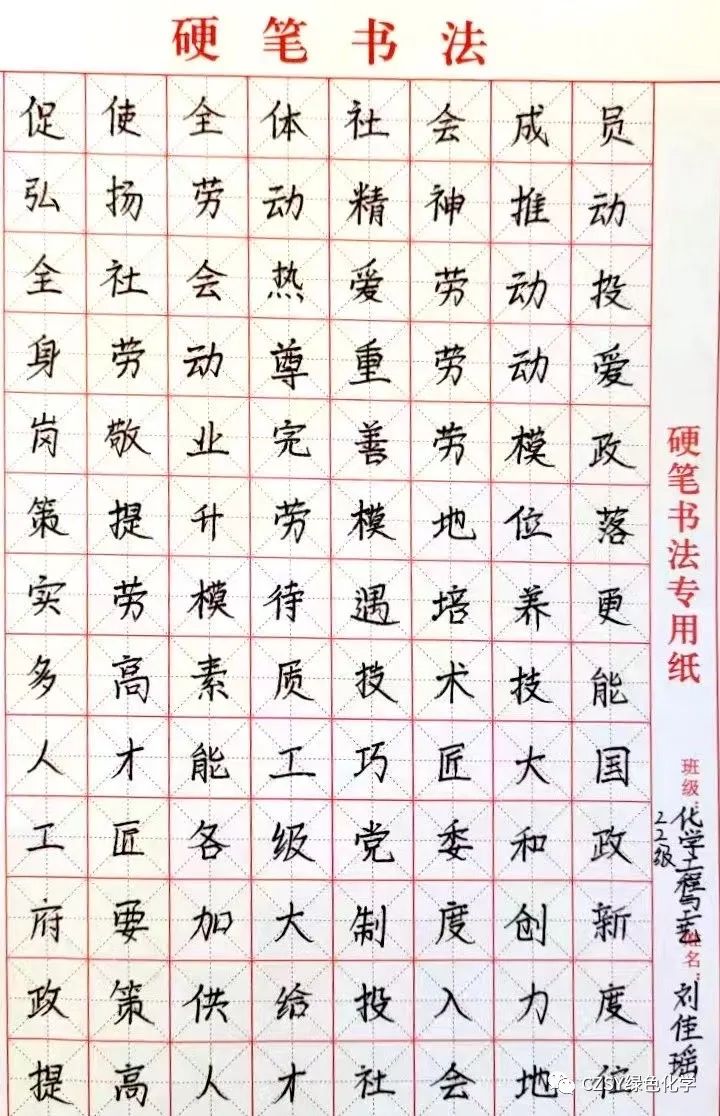 硬笔书法
促使全体社会成员
弘扬劳动精神推动
全社会热爱劳动投
身劳动尊重劳动爱
岗敬业完善劳模政
策提升劳模地位落
实劳模待遇培养更
多高素质技术技能
人才能工巧匠大国
工匠各级党委和政
府要加大制度创新
政策供给投入力度
提高人才社会地位
硬笔书法专用纸
班级：化学工程与工艺
22级
姓名：刘佳瑶
CZSY绿色化学